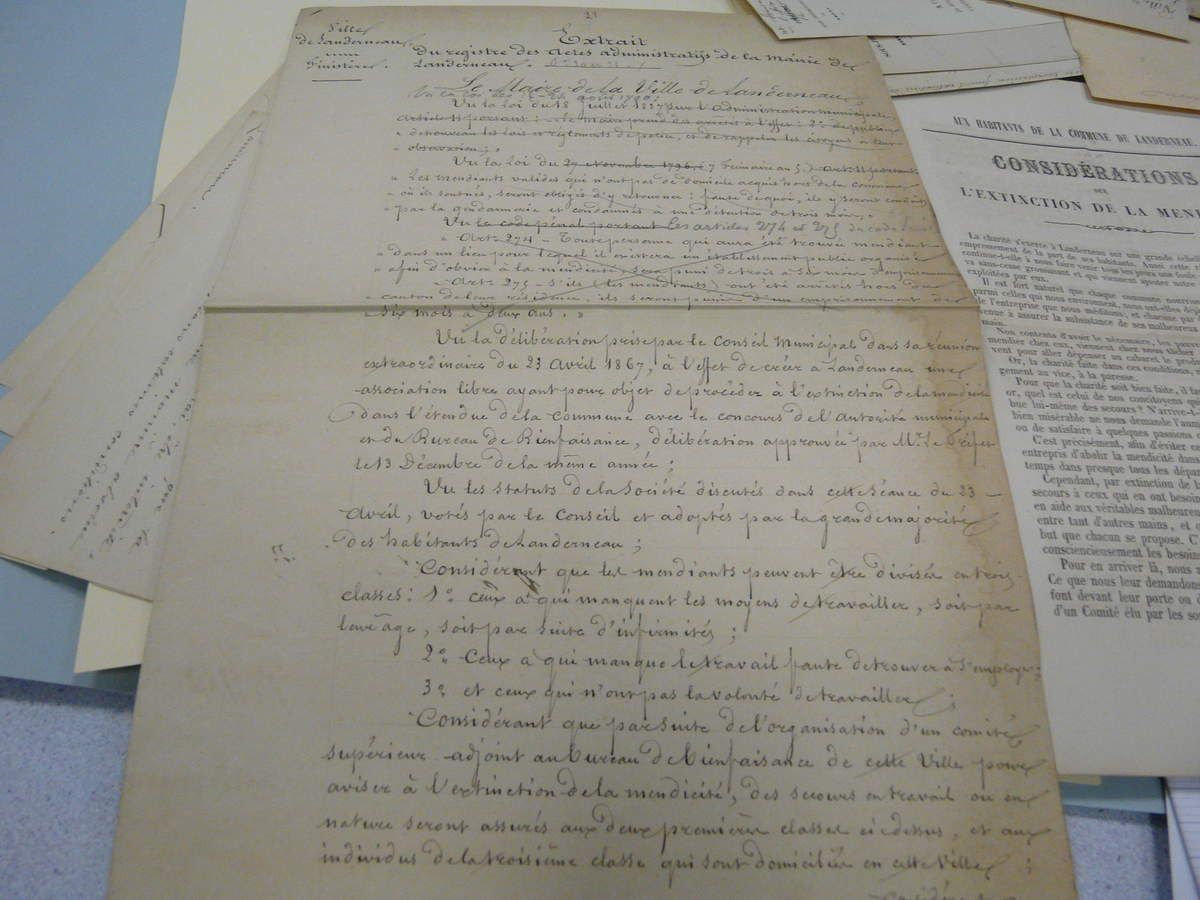 Ville
de Landerneau
Finistère.
Extrait
Du registre des actes administratifs de la Mairie de
Landerneau.
Le Maire de la Ville de Landerneau,
Vu la loi des août 1790;
Vu la loi du 18 Juillet 1837 sur l'Administration Municipale
Article 11 portant : « le maire prend des arrêtés à l'effet : 2° de publier
« de nouveau les lois et règlements de police, et de rappeler les citoyens à leur
« observation ; »
Vu la loi du 27 Novembre 1796, (7 frimaire an 5) Art: 11 portant:
« Les mendiants valides qui n'ont pas de domicile acquis hors de la commune
« où ils sont nés, seront obligés d'y retourner : faute de quoi, ils y seront conduits
« par la gendarmerie et condamnés à une détention de trois mois, »
Vu le code pénal portant les articles 274 et 275 du code pénal
« Art: 274 – Toute personne qui aura été trouvée mendiant
« dans un lieu pour lequel il existera un établissement public organisé
« afin d'obvier à la mendicité, sera puni de trois à six mois d'emprisonnement
« Art: 275 – S'ils (les mendiants) ont été arrêtés hors du
« canton de leur résidence, ils seront punis d'un emprisonnement de
« six mois à deux ans. »
Vu la délibération prise par le Conseil Municipal dans sa réunion
extraordinaire du 23 Avril 1867, à l'effet de créer à Landerneau une
association libre ayant pour objet de procéder à l'extinction de la mendicité
dans l'étendue de la Commune avec le concours de l'autorité municipale
et du Bureau de Bienfaisance, délibération approuvée par Mr. Le Préfet
le 13 Décembre de la même année ;
Vu les statuts de la Société discutés dans cette Séance du 23
Avril, votés par le Conseil et adoptés par la grande majorité
des habitants de Landerneau ;
Considérant que les mendiants peuvent être divisés en trois
classes : 1° ceux à qui manquent les moyens de travailler, soit par
leur âge, soit par suite d'infirmités ;
2° Ceux à qui manque le travail faute de trouver à s'employer ;
3° et ceux qui n'ont pas la volonté de travailler ;
Considérant que par suite de l'organisation d'un comité
supérieur adjoint au bureau de bienfaisance de cette Ville pour
aviser à l'extinction de la mendicité, des secours en travail ou en
nature seront assurés aux deux premières classes ci-dessus, et aux
individus de la troisième classe qui sont domiciliés en cette Ville ;
AUX HABITANTS DE LA COMMUNE DE LANDERNEAU.
CONSIDÉRATIONS
SUR
L'EXTINCTION DE LA MEN
La charité s'exerce à Landerneau sur une grande échel
empressement de la part de ses habitants. Aussi cette
continue-t-elle à nous faire venir tous les jours une
va sans cesse grossissant et qui viennent ajouter
exploitées par eux.
Il est fort naturel que chaque commune
parmi celles qui nous environnent,
de l'entreprise que nous méditons, et chacune
venue à assurer la subsistance de ses malheureux
main.
Non contents d'avoir le nécessaire, les
mendier chez eux,
vent pour aller dépenser au cabaret le
Or, la charité faite dans ces conditions,
gement au vice, à la paresse.
Pour que la charité soit bien faite, il
or, quel est celui de nos concitoyens
bue lui-même des secours? N'arrive-t-
bien misérable ne nous demande l'aum
ou de satisfaire à quelques passions
C'est précisément, afin d'éviter ce
entrepris d'abolir la mendicité dans
temps dans presque tous les dépar
Cependant, par extinction de la
secours à ceux qui en ont besoin
en aide aux véritables malheureux
entre tant d'autres mains, et
but que chacun se propose. C'
consciencieusement les besoin
Pour en arriver là, nous
Ce que nous leur demandons
font devant leur porte ou
d'un Comité élu par les so